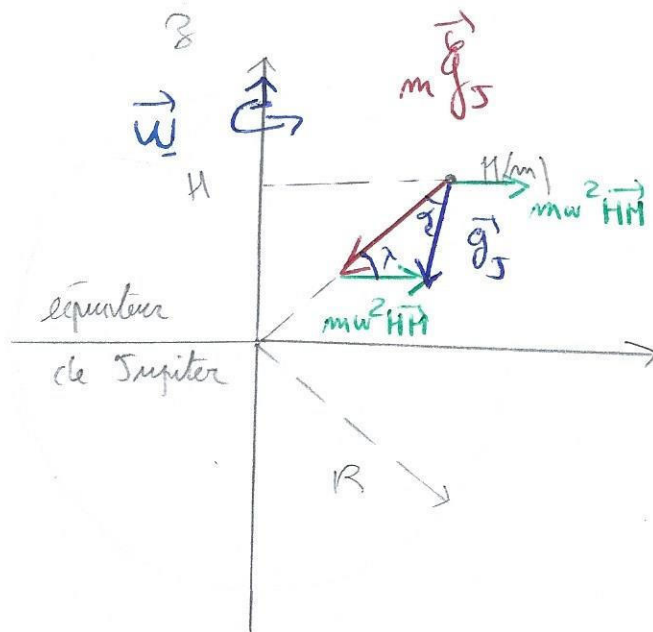 z
m \vec{G}_J
\vec{ω}
H
M(m)
mω² \vec{HM}
α
\vec{g}_J
λ
mω² \vec{HM}
équateur
de Jupiter
R